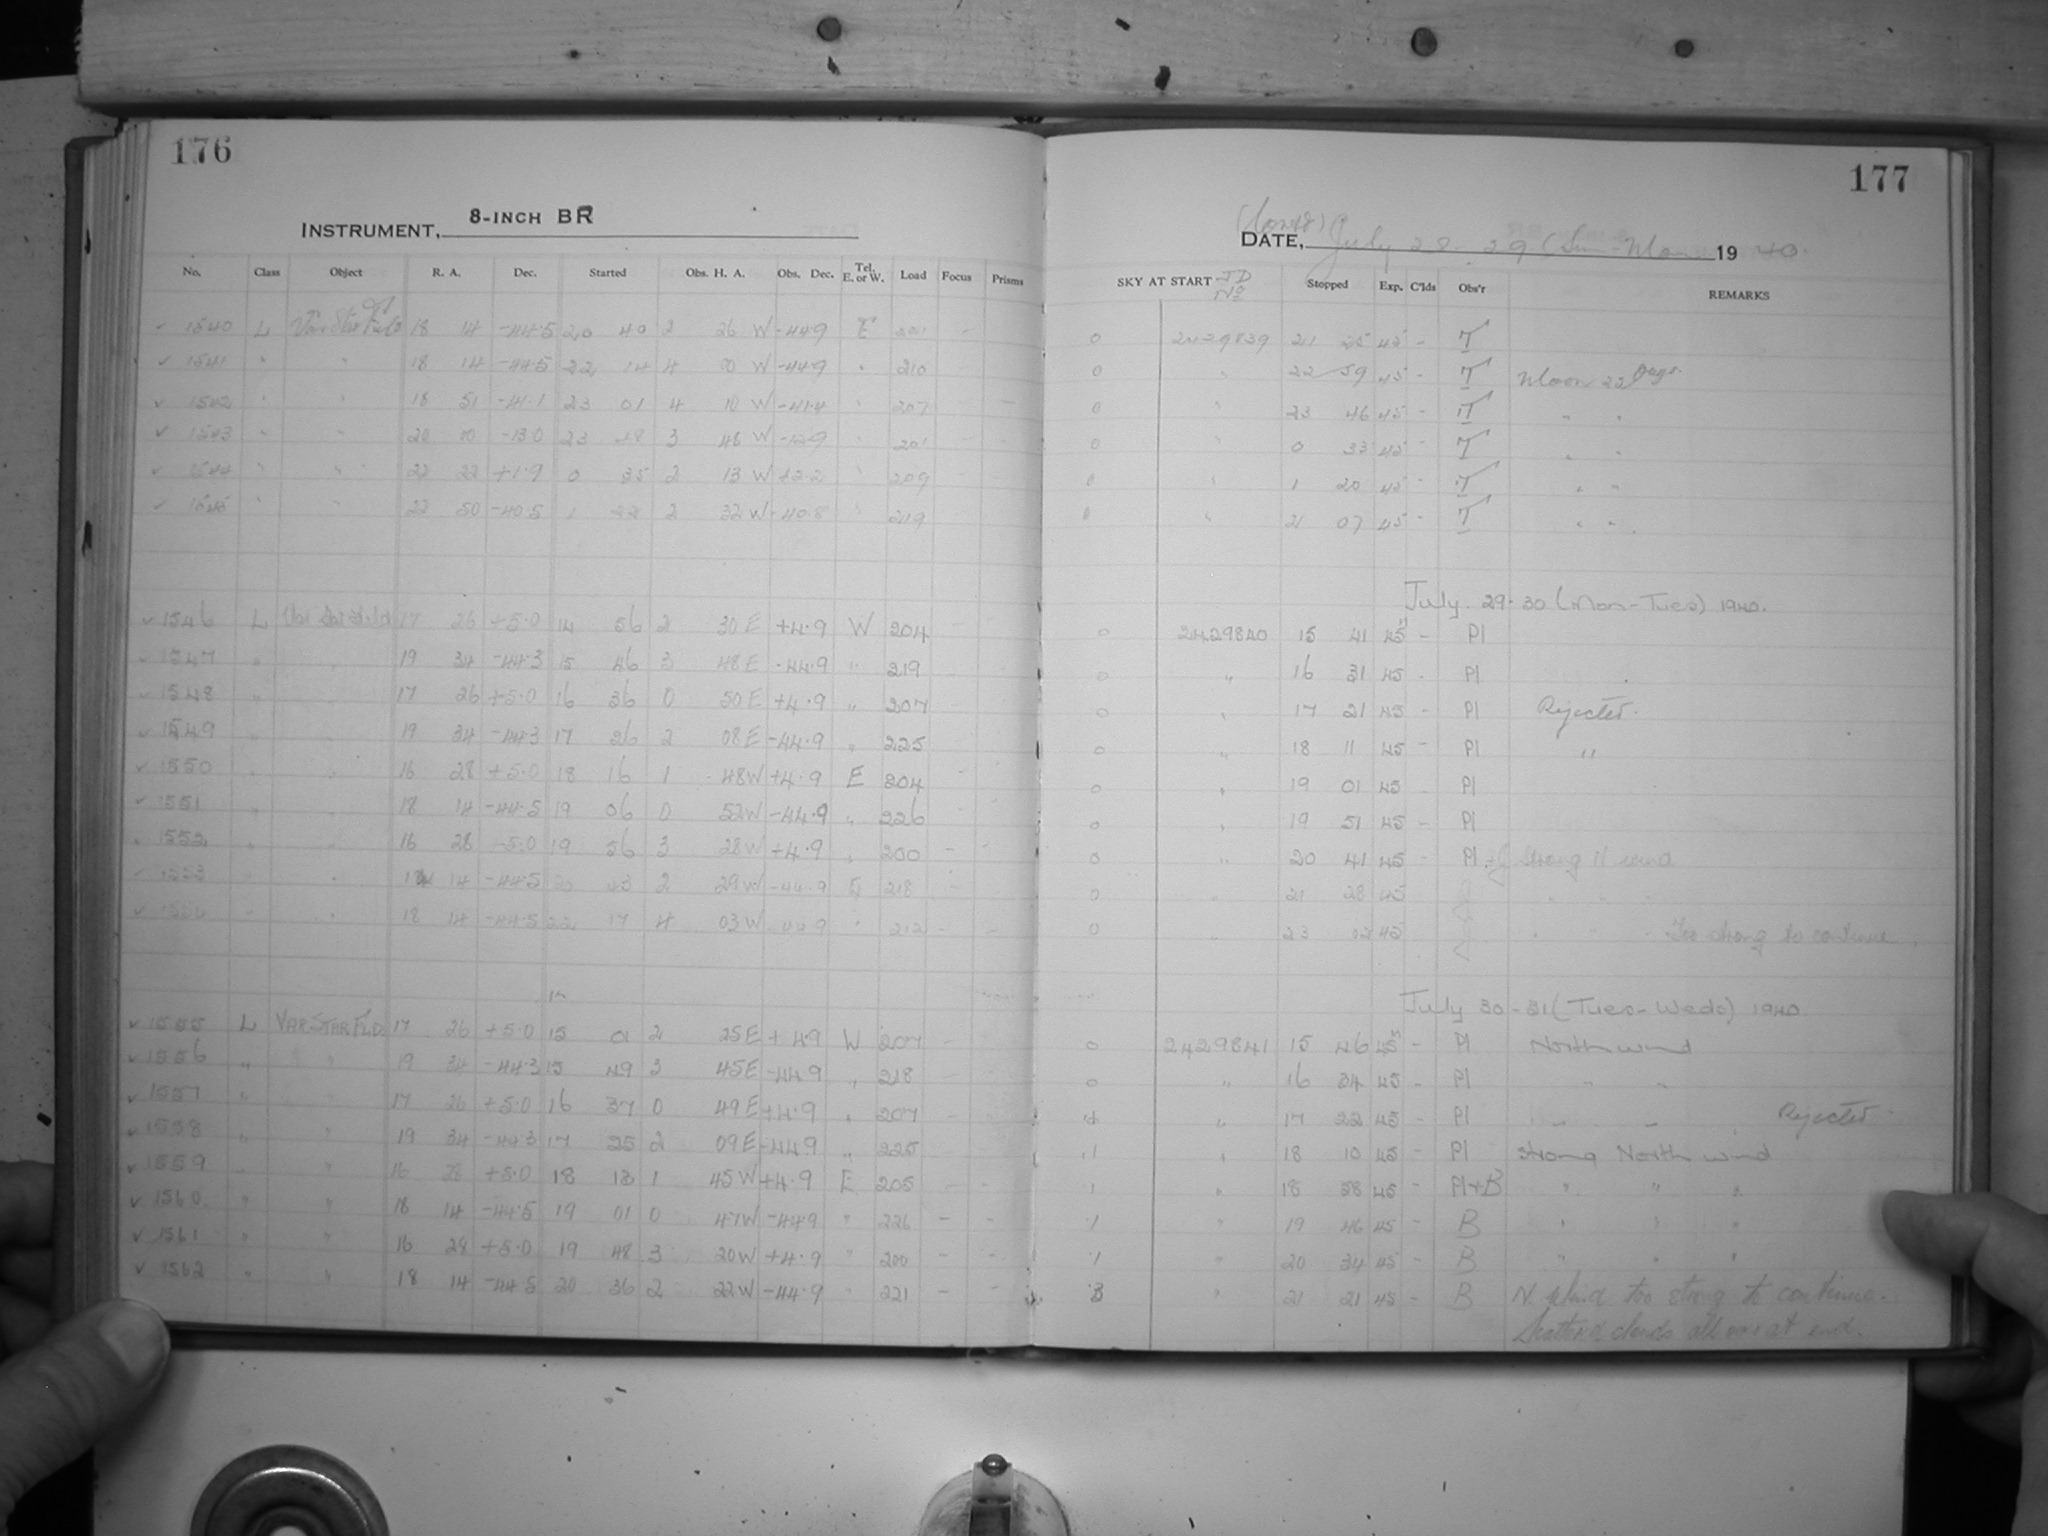 176
INSTRUMENT, 8-INCH BR
No. Class Object R. A. Dec. Started Obs. H. A. Obs. Dec. Tel. E. or W. Load Focus Prisms
1540 L Var Star Fld 18 14 -44.5 20 40 2 26 W -44.9 E 201
1541 " " 18 14 -44.5 22 14 4 00 W -44.9 " 210
1542 " " 18 51 -41.1 23 01 4 10 W -41.4 " 207
1543 " " 20 00 -13.0 23 48 3 48 W -12.9 " 201
1544 " " 22 22 +1.9 0 35 2 13 W +2.2 " 209
1545 " " 22 50 -40.5 1 22 2 32 W -40.8 " 219
1546 L Var Star Field 17 26 +5.0 14 56 2 30 E +4.9 W 204
1547 " " 19 34 -44.3 15 46 3 48 E -44.9 " 219
1548 " " 17 26 +5.0 16 36 0 50 E +4.9 " 207
1549 " " 19 34 -44.3 17 26 2 08 E -44.9 " 225
1550 " " 16 28 +5.0 18 16 1 48 W +4.9 E 204
1551 " " 18 14 -44.5 19 06 0 52 W -44.9 " 226
1552 " " 16 28 +5.0 19 56 3 28 W +4.9 " 200 - -
1553 " " 18 14 -44.5 20 43 2 29 W -44.9 E 218 -
1554 " " 18 14 -44.5 22 17 4 03 W -44.9 " 212 - -
1555 L VAR STAR FLD. 17 26 +5.0 15 01 2 25 E +4.9 W 207 -
1556 " " 19 34 -44.3 15 49 3 45 E -44.9 " 218
1557 " " 17 26 +5.0 16 37 0 49 E +4.9 " 207 -
1558 " " 19 34 -44.3 17 25 2 09 E -44.9 " 225
1559 " " 16 28 +5.0 18 13 1 45 W +4.9 E 205 - -
1560 " " 18 14 -44.5 19 01 0 47 W -44.9 " 226 - -
1561 " " 16 28 +5.0 19 48 3 20 W +4.9 " 200 - -
1562 " " 18 14 -44.5 20 36 2 22 W -44.9 " 221 - -
177
DATE, July 28-29 (Sun-Mon 1940.
SKY AT START JD No Stopped Exp. C'lds Obs'r REMARKS
0 2429839 21 25 45 - T
0 " 22 59 45 - T Moon 22 Days.
0 " 23 46 45 - T " "
0 " 0 33 45 - T " "
0 " 1 20 45 - T " "
0 " 2 07 45 - T " "
July. 29-30 (Mon-Tues) 1940.
0 2429840 15 41 45 - Pl
0 " 16 31 45 - Pl
0 " 17 21 45 - Pl Rejected.
0 " 18 11 45 - Pl "
0 " 19 01 45 Pl
0 " 19 51 45 - Pl
0 " 20 41 45 - Pl Strong N wind
0 " 21 28 45 " " "
0 " 23 02 45 " " " Too strong to continue.
July 30-31 (Tues-Weds) 1940
0 2429841 15 46 45 - Pl North wind
0 " 16 34 45 - Pl " "
" 17 22 45 - Pl " " Rejected.
1 " 18 10 45 - Pl Strong North wind
1 " 18 58 45 - Pl+B " " "
1 " 19 46 45 - B " " "
1 " 20 34 45 - B " " "
3 " 21 21 45 - B N. Wind too strong to continue.
Scattered clouds all over at end.